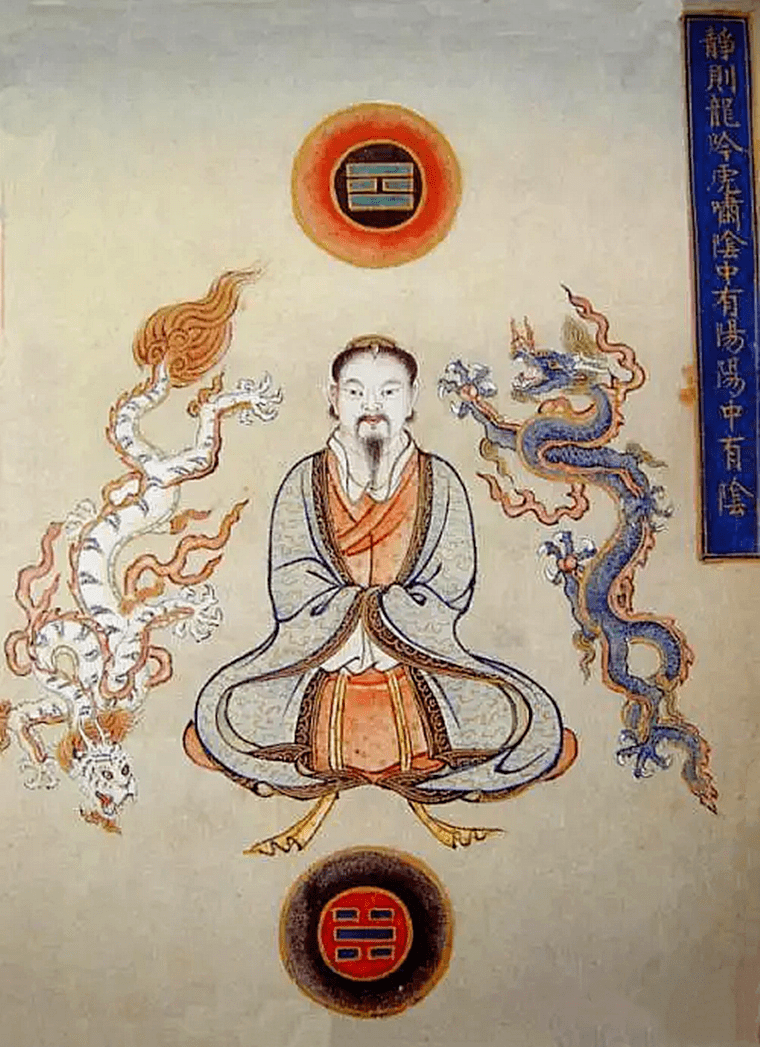 靜則龍吟虎嘯陰中有陽陽中有陰